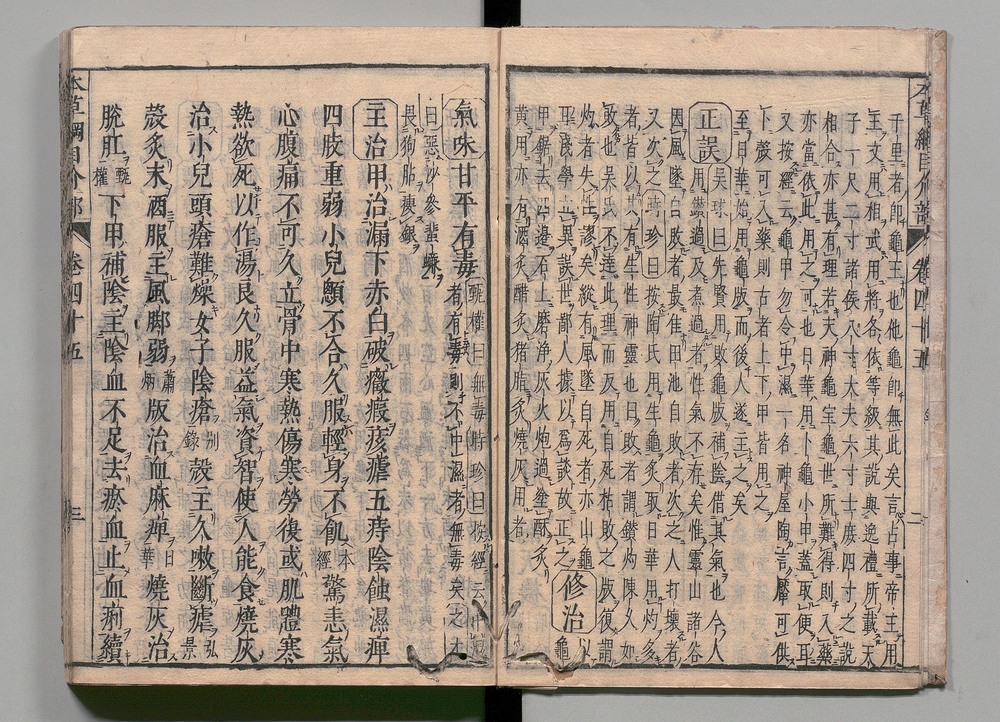 千里者即龜王也他龜即無此矣言占事帝王用
王文用相武用將各依等級其說與逸禮所載天
子一尺二寸諸侯八寸大夫六寸士庶四寸之說
相合亦甚有理若天神龜寶龜世所難得則入藥
亦當依此用之可也日華用卜龜小甲蓋取便耳
又按經云龜甲勿令中濕一名神屋陶言厴可供
卜殼可入藥則古者上下甲皆用之
至日華始用龜版而後人遂主之矣
正誤 吳球曰先賢用敗龜版補陰借其氣也今人
用鑽過及煮過者性氣不存矣惟靈山諸谷
因風墜自敗者最佳田池自敗者次之人打壞者
又次之時珍曰按陶氏用生龜炙取日華用灼多
者皆以其有生性神靈也曰敗者謂鑽灼陳久如
敗也吳氏不達此理而反用自死枯敗之版復謂
灼者失性謬矣縱有風墜自死者亦山龜耳
淺學立異誤世鄙人據以爲談故正之 修治 龜
甲鋸去四邊石上磨淨灰火炮過塗酥炙
黄用亦有酒炙醋炙猪脂炙燒灰用者
本草綱目介部 卷四十五 二
氣味甘平有毒 甄權曰無毒時珍曰按經云中濕
者有毒則不中濕者無毒矣之才
曰惡沙參蜚蠊
畏狗膽瘦銀
主治甲治漏下赤白破癥瘕痎瘧五痔陰蝕濕痺
四肢重弱小兒顖不合久服輕身不飢 本經 驚恚氣
心腹痛不可久立骨中寒熱傷寒勞復或肌體寒
熱欲死以作湯良久服益氣資智使人能食燒灰
治小兒頭瘡難燥女子陰瘡 別錄 殼主久嗽斷瘧 弘景
殼炙末酒服主風脚弱 蕭炳 版治血麻痺 日華 燒灰治
脫肛 甄權 下甲補陰主陰血不足去瘀血止血痢續
本草綱目介部 卷四十五 三